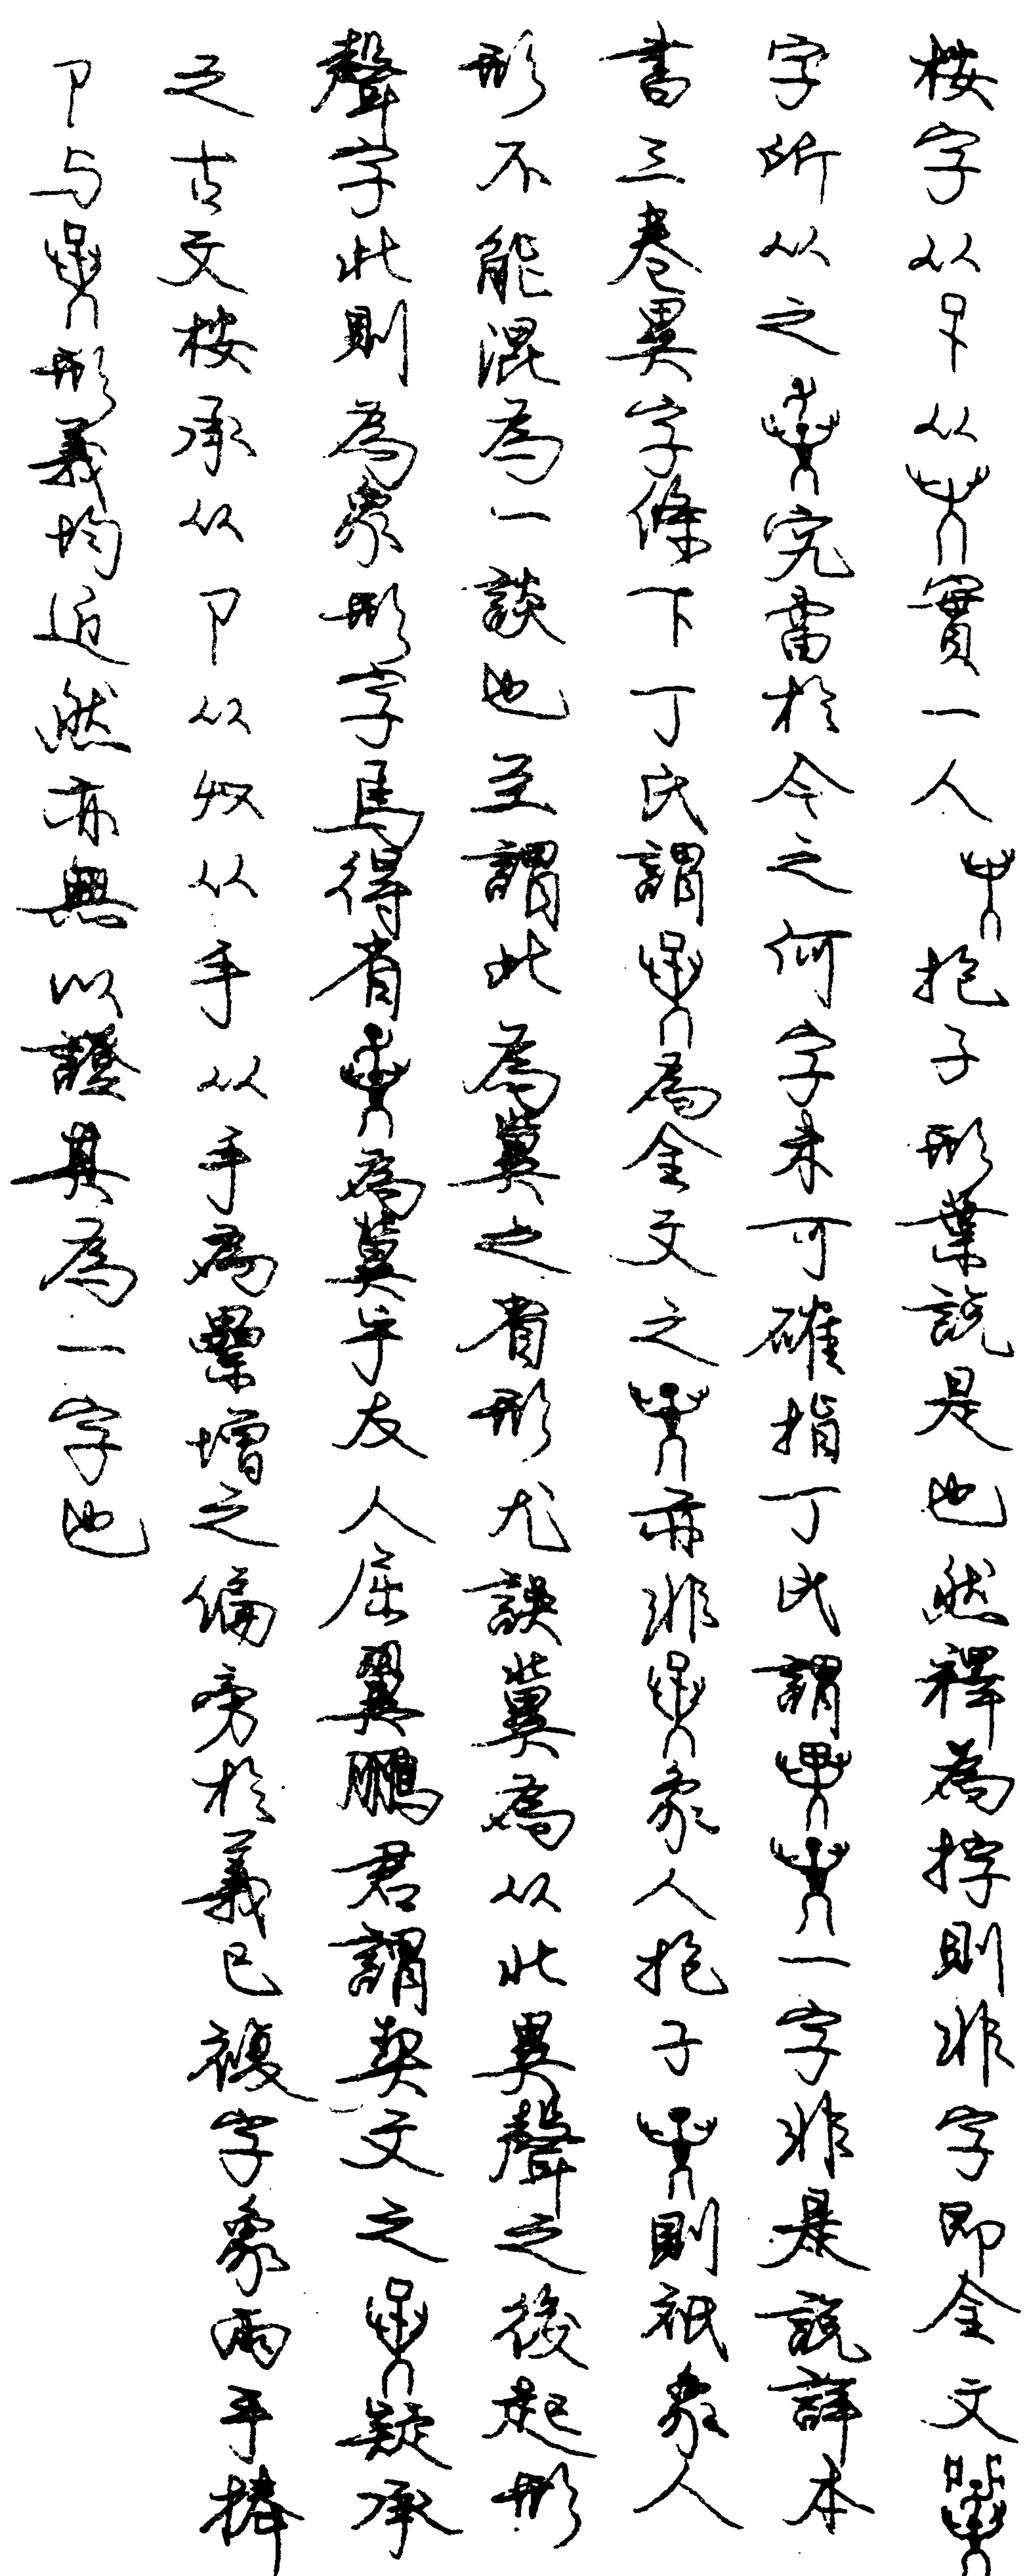 按字从𠃌从實一人抱子形葉說是也然釋為㝅則非字即金文
字所从之究當於今之何字未可確指丁氏謂一字非是說詳本
書三卷異字條下丁氏謂為金文之亦非象人抱子則祇象人
形不能混為一談也至謂此為冀之省形尤誤冀為从北異聲之後起形
聲字此則為象形字焉得省為冀乎友人屈翼鵬君謂契文之疑承
之古文按承从卩从収从手从手為纍增之偏旁於義已複字象兩手捧
卩与形義均近然亦無以證其為一字也